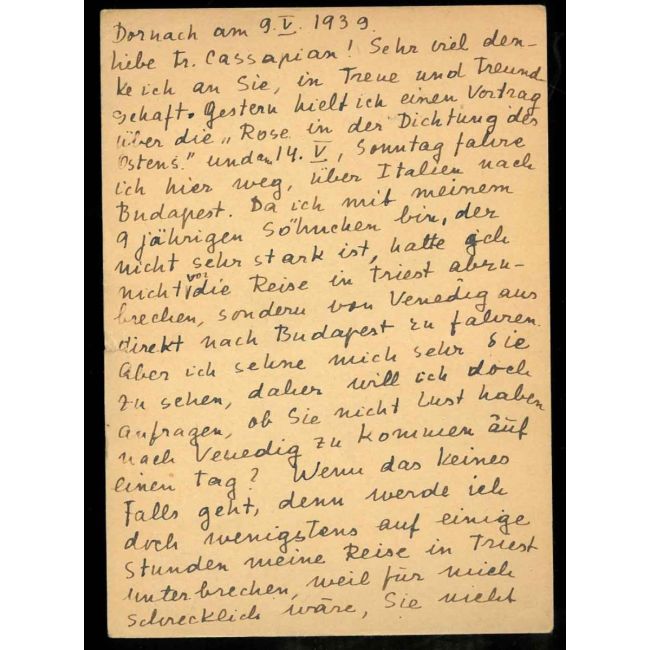 Dornach am 9. V. 1939.
liebe Fr. Cassapian! Sehr viel den-
ke ich an Sie, in Treue und Freund
schaft. Gestern hielt ich einen Vortrag
über die „Rose in der Dichtung des
Ostens." und am 14. V, Sonntag fahre
ich hier weg, über Italien nach
Budapest. Da ich mit meinem
9 jährigen Söhnchen bin, der
nicht sehr stark ist, hatte ich
nicht vor die Reise in Triest abzu-
brechen, sondern von Venedig aus
direkt nach Budapest zu fahren.
Aber ich sehne mich sehr Sie
zu sehen, daher will ich doch
anfragen, ob Sie nicht Lust haben
nach Venedig zu kommen auf
einen Tag? Wenn das keines
Falls geht, denn werde ich
doch wenigstens auf einige
Stunden meine Reise in Triest
unterbrechen, weil für mich
schrecklich wäre, Sie nicht